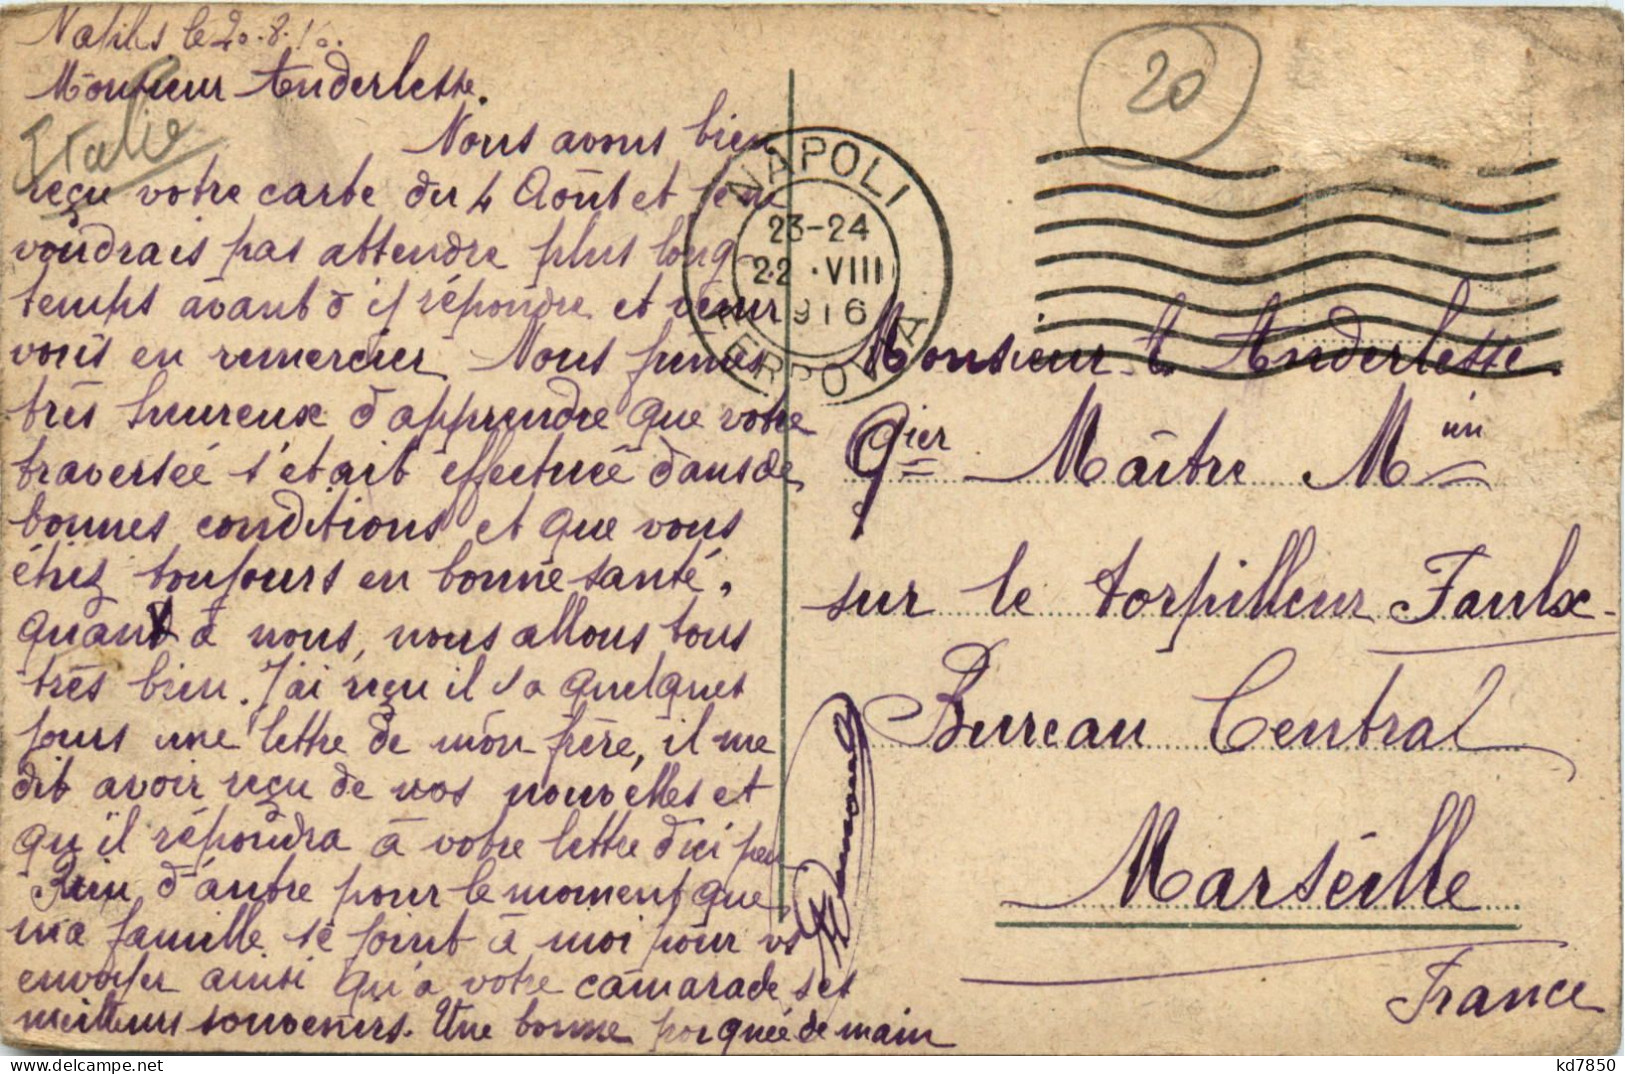 Naples le 20.8.16.
Monsieur Anderlesse.
Italie
20
Nous avons bien
reçu votre carte du 4 Août et je ne
voudrais pas attendre plus long
temps avant d'y répondre et venir
vous en remercier. Nous fûmes
très heureux d'apprendre que votre
traversée s'était effectuée dans de
bonnes conditions et que vous
étiez toujours en bonne santé.
quant à nous, nous allons tous
très bien. J'ai reçu il y a quelques
jours une lettre de mon frère, il me
dit avoir reçu de vos nouvelles et
qu'il répondra à votre lettre d'ici peu
Rien d'autre pour le moment que
ma famille se joint à moi pour vs
envoyer ainsi qu'à votre camarade ses
meilleurs souvenirs. Une bonne poignée de main
NAPOLI
23-24
22 · VIII
916
FERROVIA
Monsieur Anderlesse
qier Maître Min
sur le torpilleur Faulx
Bureau Central
Marseille
France
kd7850